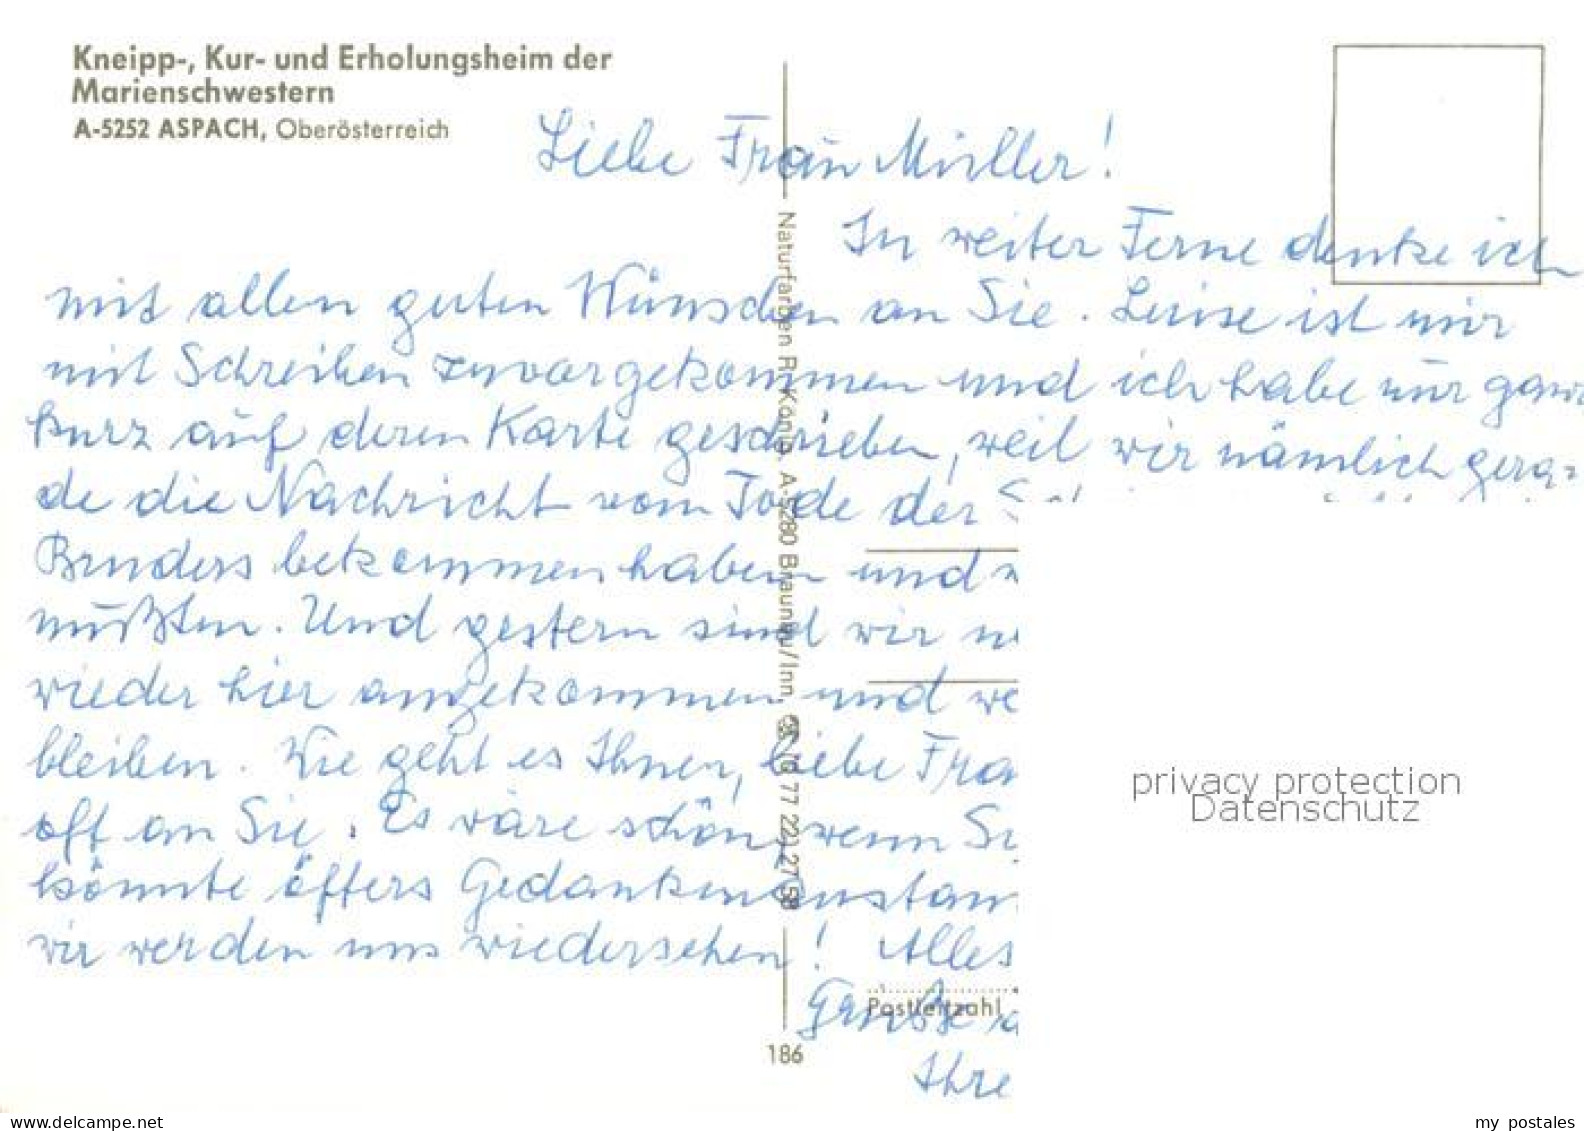 Kneipp-, Kur- und Erholungsheim der
Marienschwestern
A-5252 ASPACH, Oberösterreich
Liebe Frau Müller!
In weiter Ferne denke ich
mit allen guten Wünschen an Sie. Luise ist mir
mit Schreiben zuvorgekommen und ich habe nur ganz
kurz auf deren Karte geschrieben, weil wir nämlich gera=
de die Nachricht vom Tode der
Bruders bekommen haben und
mußten. Und gestern sind wir
wieder hier angekommen und
bleiben. Wie geht es Ihnen, liebe Fra
oft an Sie. Es wäre schön, wenn
könnte öfters Gedankenaustau
wir werden uns wiedersehen! Alles
Grüße
Ihre
Naturfarben R. König, A-5280 Braunau/Inn, ☎ (0 77 22) 27 58
Postleitzahl
186
privacy protection
Datenschutz
www.delcampe.net
my_postales